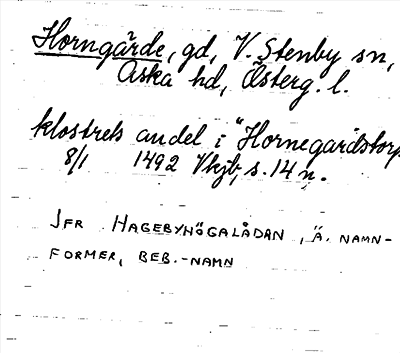 Horngärde, gd, V. Stenby sn,
Aska hd, Österg. l.
klostrets andel i "Hornegardstorp
8/1 1492 Vkjb, s. 14 n.
JFR HAGEBYHÖGALÅDAN, Ä. NAMN-
FORMER, BEB.-NAMN